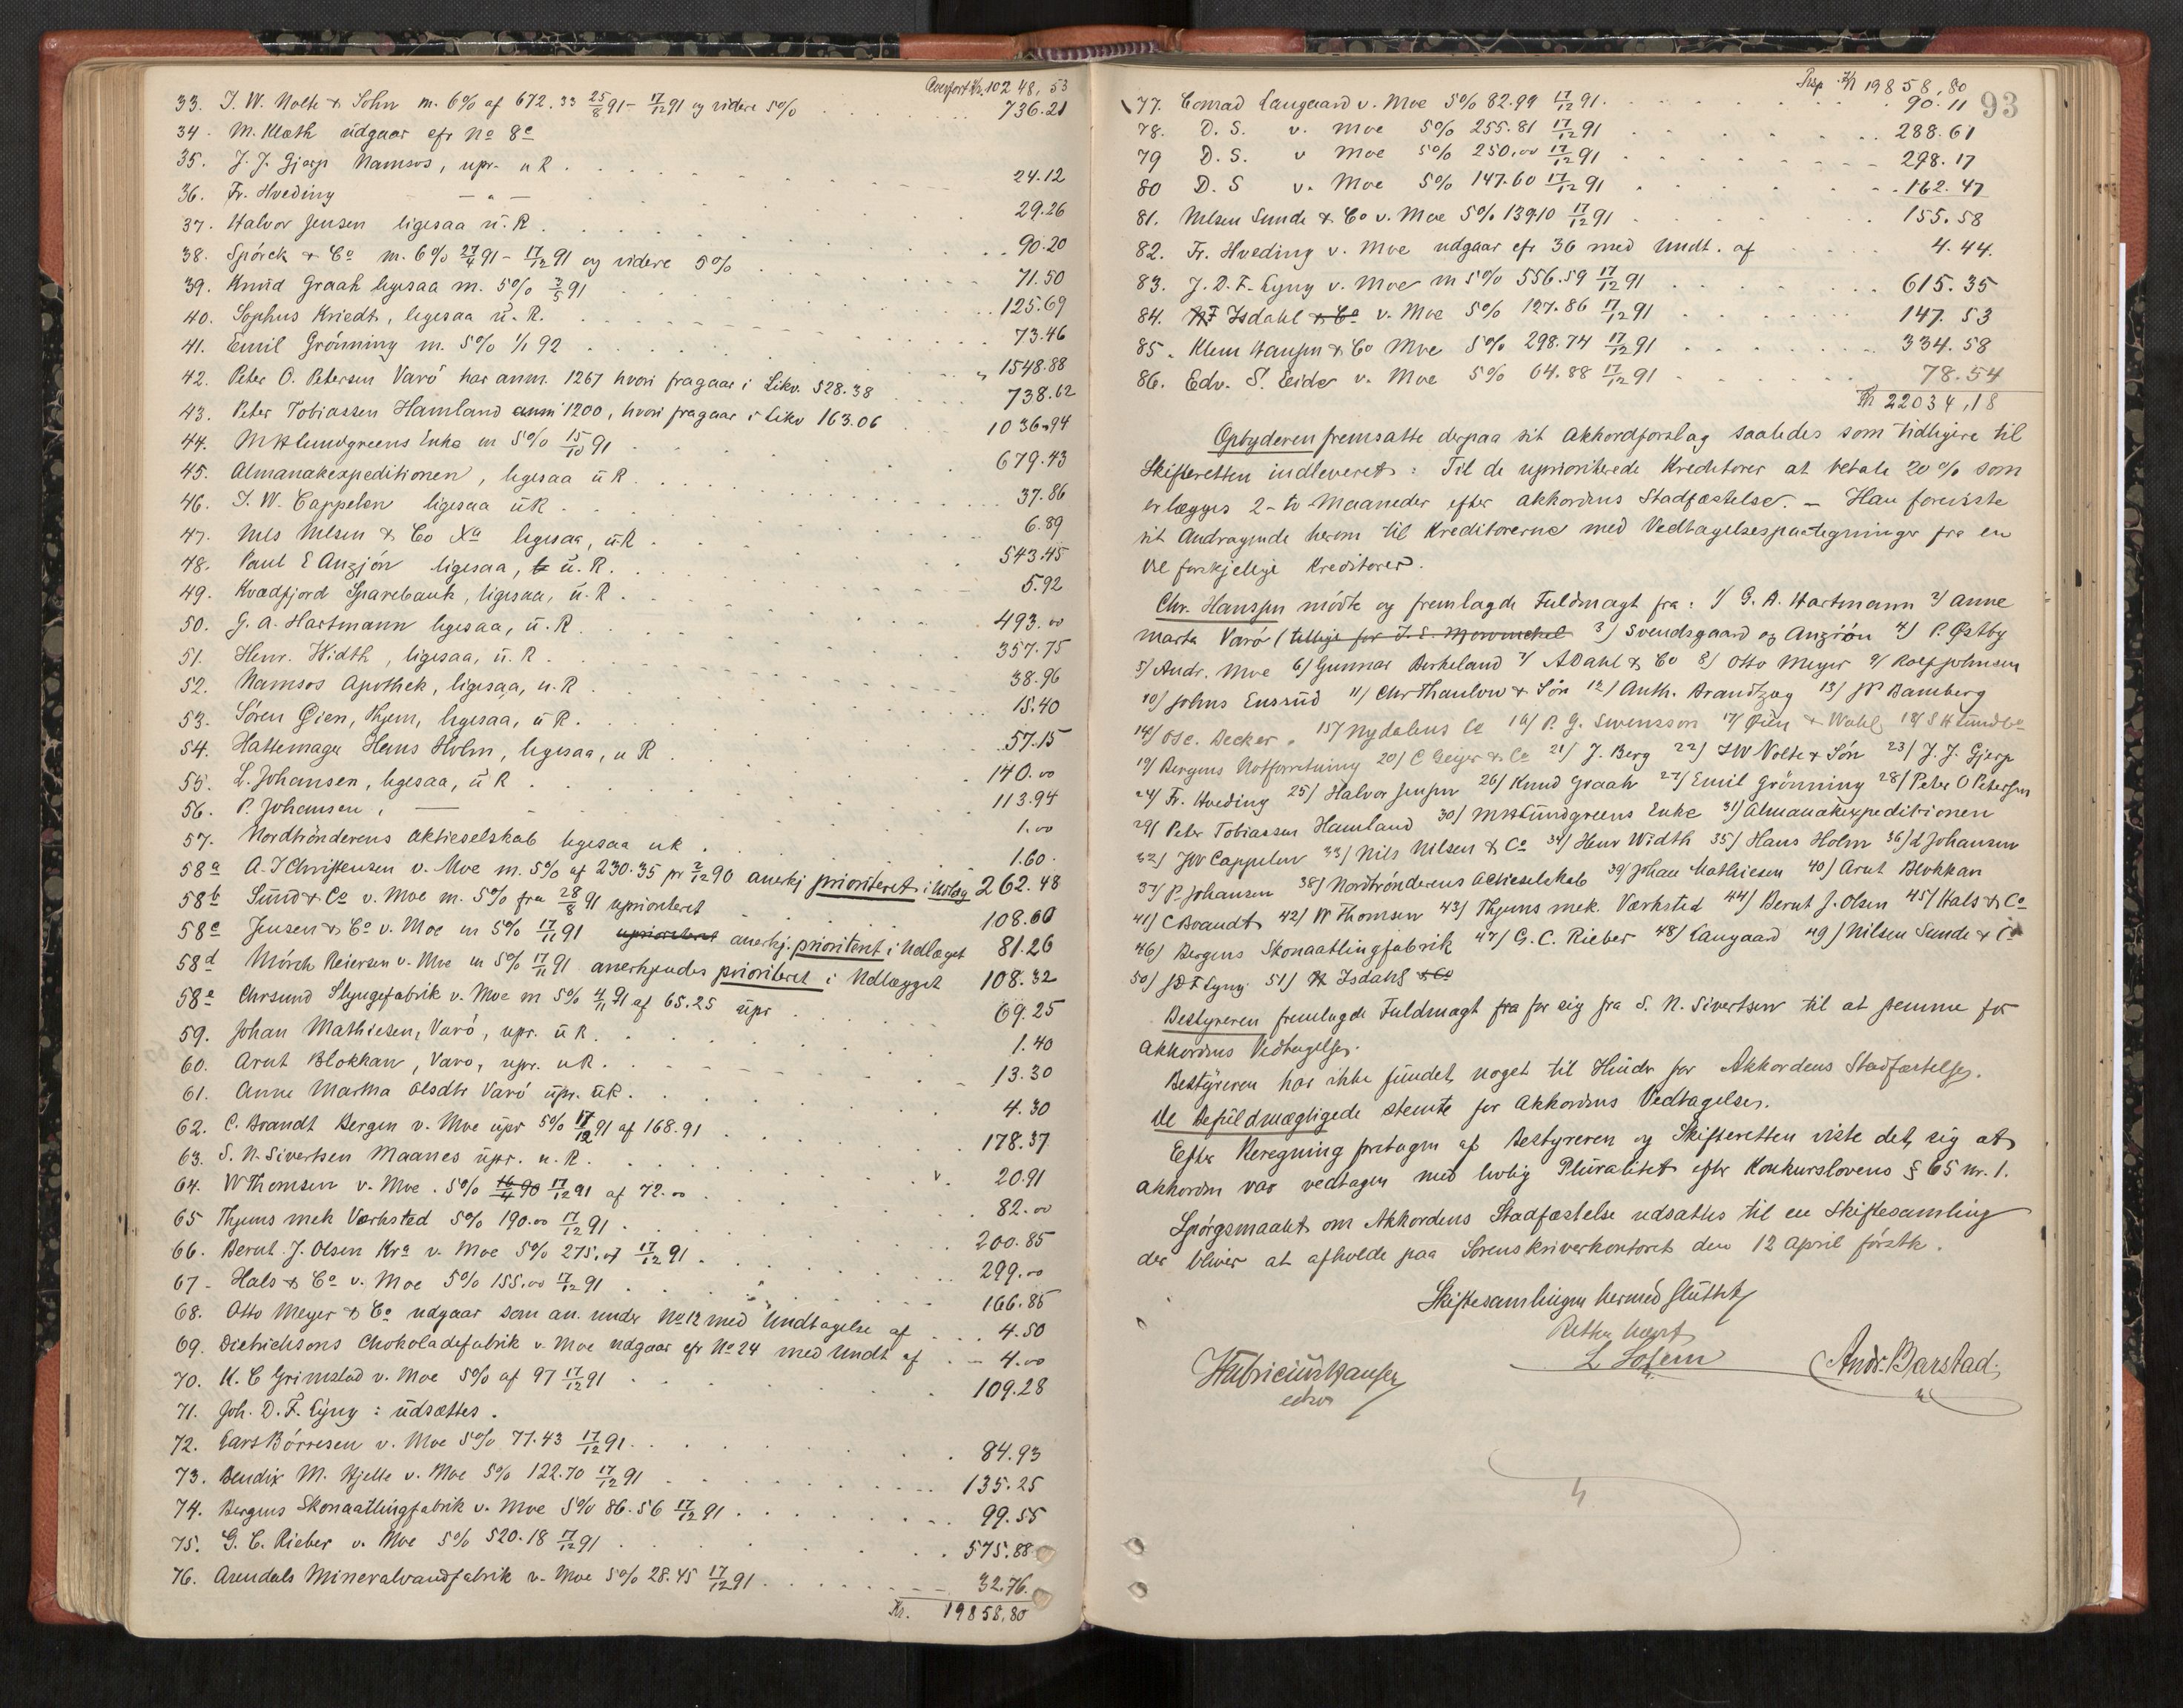 Overført Kr. 10248,53
33. J. W. Nolte & Sohn m. 6% af 672.33 25/8 91 - 17/12 91 og videre 5% 736.21
34. M. Klæth udgaar efr No 8c
35. J. J. Gjerp Namsos, upr. u R. 24.12
36. Fr. Hveding — " — 29.26
37. Halvor Jensen ligesaa u. R. 90.20
38. Spörck & Co m. 6% 27/4 91 - 17/12 91 og videre 5% 71.50
39. Knud Graah ligesaa m. 5% 3/5 91 125.69
40. Sophus Kriedt, ligesaa u. R. 73.46
41. Emil Grönning m. 5% 1/1 92 1548.88
42. Peter O. Petersen Varö har anm. 1267 hvori fragaar i Likv. 528.38 738.62
43. Peter Tobiassen Hamland anm 1200, hvori fragaar i Likv 163.06 1036.94
44. M H Lundgreens Enke m 5% 15/10 91 679.43
45. Almanakexpeditionen, ligesaa u R. 37.86
46. J. W. Cappelen ligesaa uR 6.89
47. Nils Nilsen & Co Xa ligesaa, u.R 543.45
48. Paul E Anzjön ligesaa, u. R. 5.92
49. Kvædfjord Sparebank, ligesaa, u. R 493.00
50. G. A. Hartmann ligesaa, u. R 357.75
51. Henr. Width, ligesaa, u. R. 38.96
52. Namsos Apothek, ligesaa, u. R 15.40
53. Sören Øien, Thjem, ligesaa, u R. 57.15
54. Hattemager Hans Holm, ligesaa, u R 140.00
55. L. Johansen, ligesaa, u R 113.94
56. P. Johansen, — 1.00
57. Nordtrönderens Aktieselskab ligesaa uR. 1.60
58a A. J Christensen v. Moe m. 5% af 230.35 pr 2/12 90 anerkj prioriteret i Udlæg 262.48
58b Sund & Co v. Moe m. 5% fra 28/8 91 uprioriteret 108.60
58c Jensen & Co v. Moe m 5% 17/11 91 uprioriteret anerkj. prioriteret i Udlæget 81.26
58d Mörch Reiersen v. Moe m 5% 17/11 91 anerkjendes prioriteret i Udlægget 108.32
58e Chrsund Slyngefabrik v. Moe m 5% 4/11 91 af 65.25 upr 69.25
59. Johan Mathiesen, Varö, upr. u R. 1.40
60. Arnt Blokhan, Varö, upr. uR. 13.30
61. Anne Martha Olsdtr Varö upr. uR. 4.30
62. C. Brandt Bergen v. Moe upr 5% 17/12 91 af 168.91 178.37
63. S. N. Sivertsen Maanes upr. u. R. v. 20.91
64. W Thomsen v. Moe. 5% 16/4 90 17/12 91 af 72.00 82.00
65 Thjems mek Værksted 5% 190.00 17/12 91 200.85
66. Bernt. J. Olsen Kra v. Moe 5% 275.07 17/12 91 299.00
67. Hals & Co v. Moe 5% 155.00 17/12 91 166.85
68. Otto Meyer & Co udgaar som an. under No 12 med Undtagelse af 4.50
69. Dietrichsons Chokoladefabrik v. Moe udgaar efr No 24 med Undt af 4.00
70. K. C Grimstad v. Moe 5% af 97 17/12 91 109.28
71. Joh. D. F. Eyng: udsættes.
72. Lars Börresen v. Moe 5% 77.43 17/12 91. 84.93
73. Bendix M. Hjelle v. Moe 5% 122.70 17/12 91 135.25
74. Bergens Skonaatlingfabrik v. Moe 5% 86.56 17/12 91. 99.55
75. G. C. Rieber v. Moe 5% 520.18 17/12 91 575.88
76. Arendals Mineralvandfabrik v. Moe 5% 28.45 17/12 91. 32.76
Kr. 19858,80
Trsp. Kr 19858,80
93
77. Conrad Langaard v. Moe 5% 82.99 17/12 91. 90.11
78. D. S. v. Moe 5% 255.81 17/12 91 288.61
79 D. S. v Moe 5% 250,00 17/12 91 298.17
80 D. S v. Moe 5% 147.60 17/12 91 162.47
81. Nilsen Sunde & Co v. Moe 5% 139.10 17/12 91 155.58
82. Fr. Hveding v. Moe udgaar efr 36 med Undt. af 4.44.
83. J. D. F. Eyng v. Moe m 5% 556.59 17/12 91 615.35
84. Isdahl & Co v. Moe 5% 127.86 17/12 91 147.53
85. Klem Hansen & Co Moe 5% 298.74 17/12 91 334.58
86. Edv. S. Eide v. Moe 5% 64.88 17/12 91 78.54
Kr 22034,18
Opbyderen fremsatte derpaa sit Akkordforslag saaledes som tidligere til
Skifteretten indleveret: Til de uprioriterede Kreditorer at betale 20% som
erlægges 2-to Maaneder efter Akkordens Stadfæstelse. – Han foreviste
sit Andragende herom til Kreditorerne med Vedtagelsespaategninger fra en
Del forskjellige Kreditorer.
Chr. Hanssen mödte og fremlagde Fuldmagt fra: 1/ G. A. Hartmann 2/ Anne
Marta Varö (tillige for J. S. Mowinckel 3/ Svendsgaard og Anzjön 4/ P. Østby
5/ Andr. Moe 6/ Gunnar Birkeland 7/ A Dahl & Co 8/ Otto Meyer 9/ Rolf Johnsen
10/ Johns Ensrud 11/ Chr Thaulow & Sön 12/ Anth. Brandtzæg 13/ Bamberg
14/ Osc. Decker. 15/ Nydalens Co 16/ P. G. Svensson 17/ Øien & Wahl 18/ S H Lund
19/ Bergens Notforretning 20/ C Geijer & Co 21/ J. Berg 22/ J W Nolte & Sön 23/ J. J. Gjerp
24/ Fr. Hveding 25/ Halvor Jensen 26/ Knud Graah 27/ Emil Grönning 28/ Peter O Petersen
29/ Peter Tobiassen Hamland 30/ M H Lundgreens Enke 31/ Almanakexpeditionen
32/ JW Cappelen 33/ Nils Nilsen & Co 34/ Henr Width 35/ Hans Holm 36/ L Johansen
37/ P. Johansen 38/ Nordtrönderens Actieselskab 39/ Johan Mathiesen 40/ Arnt Blokhan
41/ C Brandt 42/ W Thomsen 43/ Thjems mek. Værksted 44/ Bernt J. Olsen 45/ Hals & Co
46/ Bergens Skonaatlingfabrik 47/ G. C. Rieber 48/ Langaard 49/ Nilsen Sunde & Co
50/ J D F Eyng 51/ Isdahl & Co
Bestyreren fremlagde Fuldmagt fra for sig fra S. N. Sivertsen til at stemme for
Akkordens Vedtagelse.
Bestyreren har ikke fundet noget til Hinder for Akkordens Stadfæstelse.
De Befuldmægtigede stemte for Akkordens Vedtagelse.
Efter Beregning foretagen af Bestyreren og Skifteretten viste det sig at
Akkorden var vedtagen med lovlig Pluralitet efter Konkurslovens § 65 nr. 1.
Spörgsmaalet om Akkordens Stadfæstelse udsattes til en Skiftesamling
der bliver at afholde paa Sorenskriverkontoret den 12 April förstk.
Skiftesamlingen hermed sluttet
Retten hævet
L Solem
Fabricius Hansen
edsv
Andr. Barstad